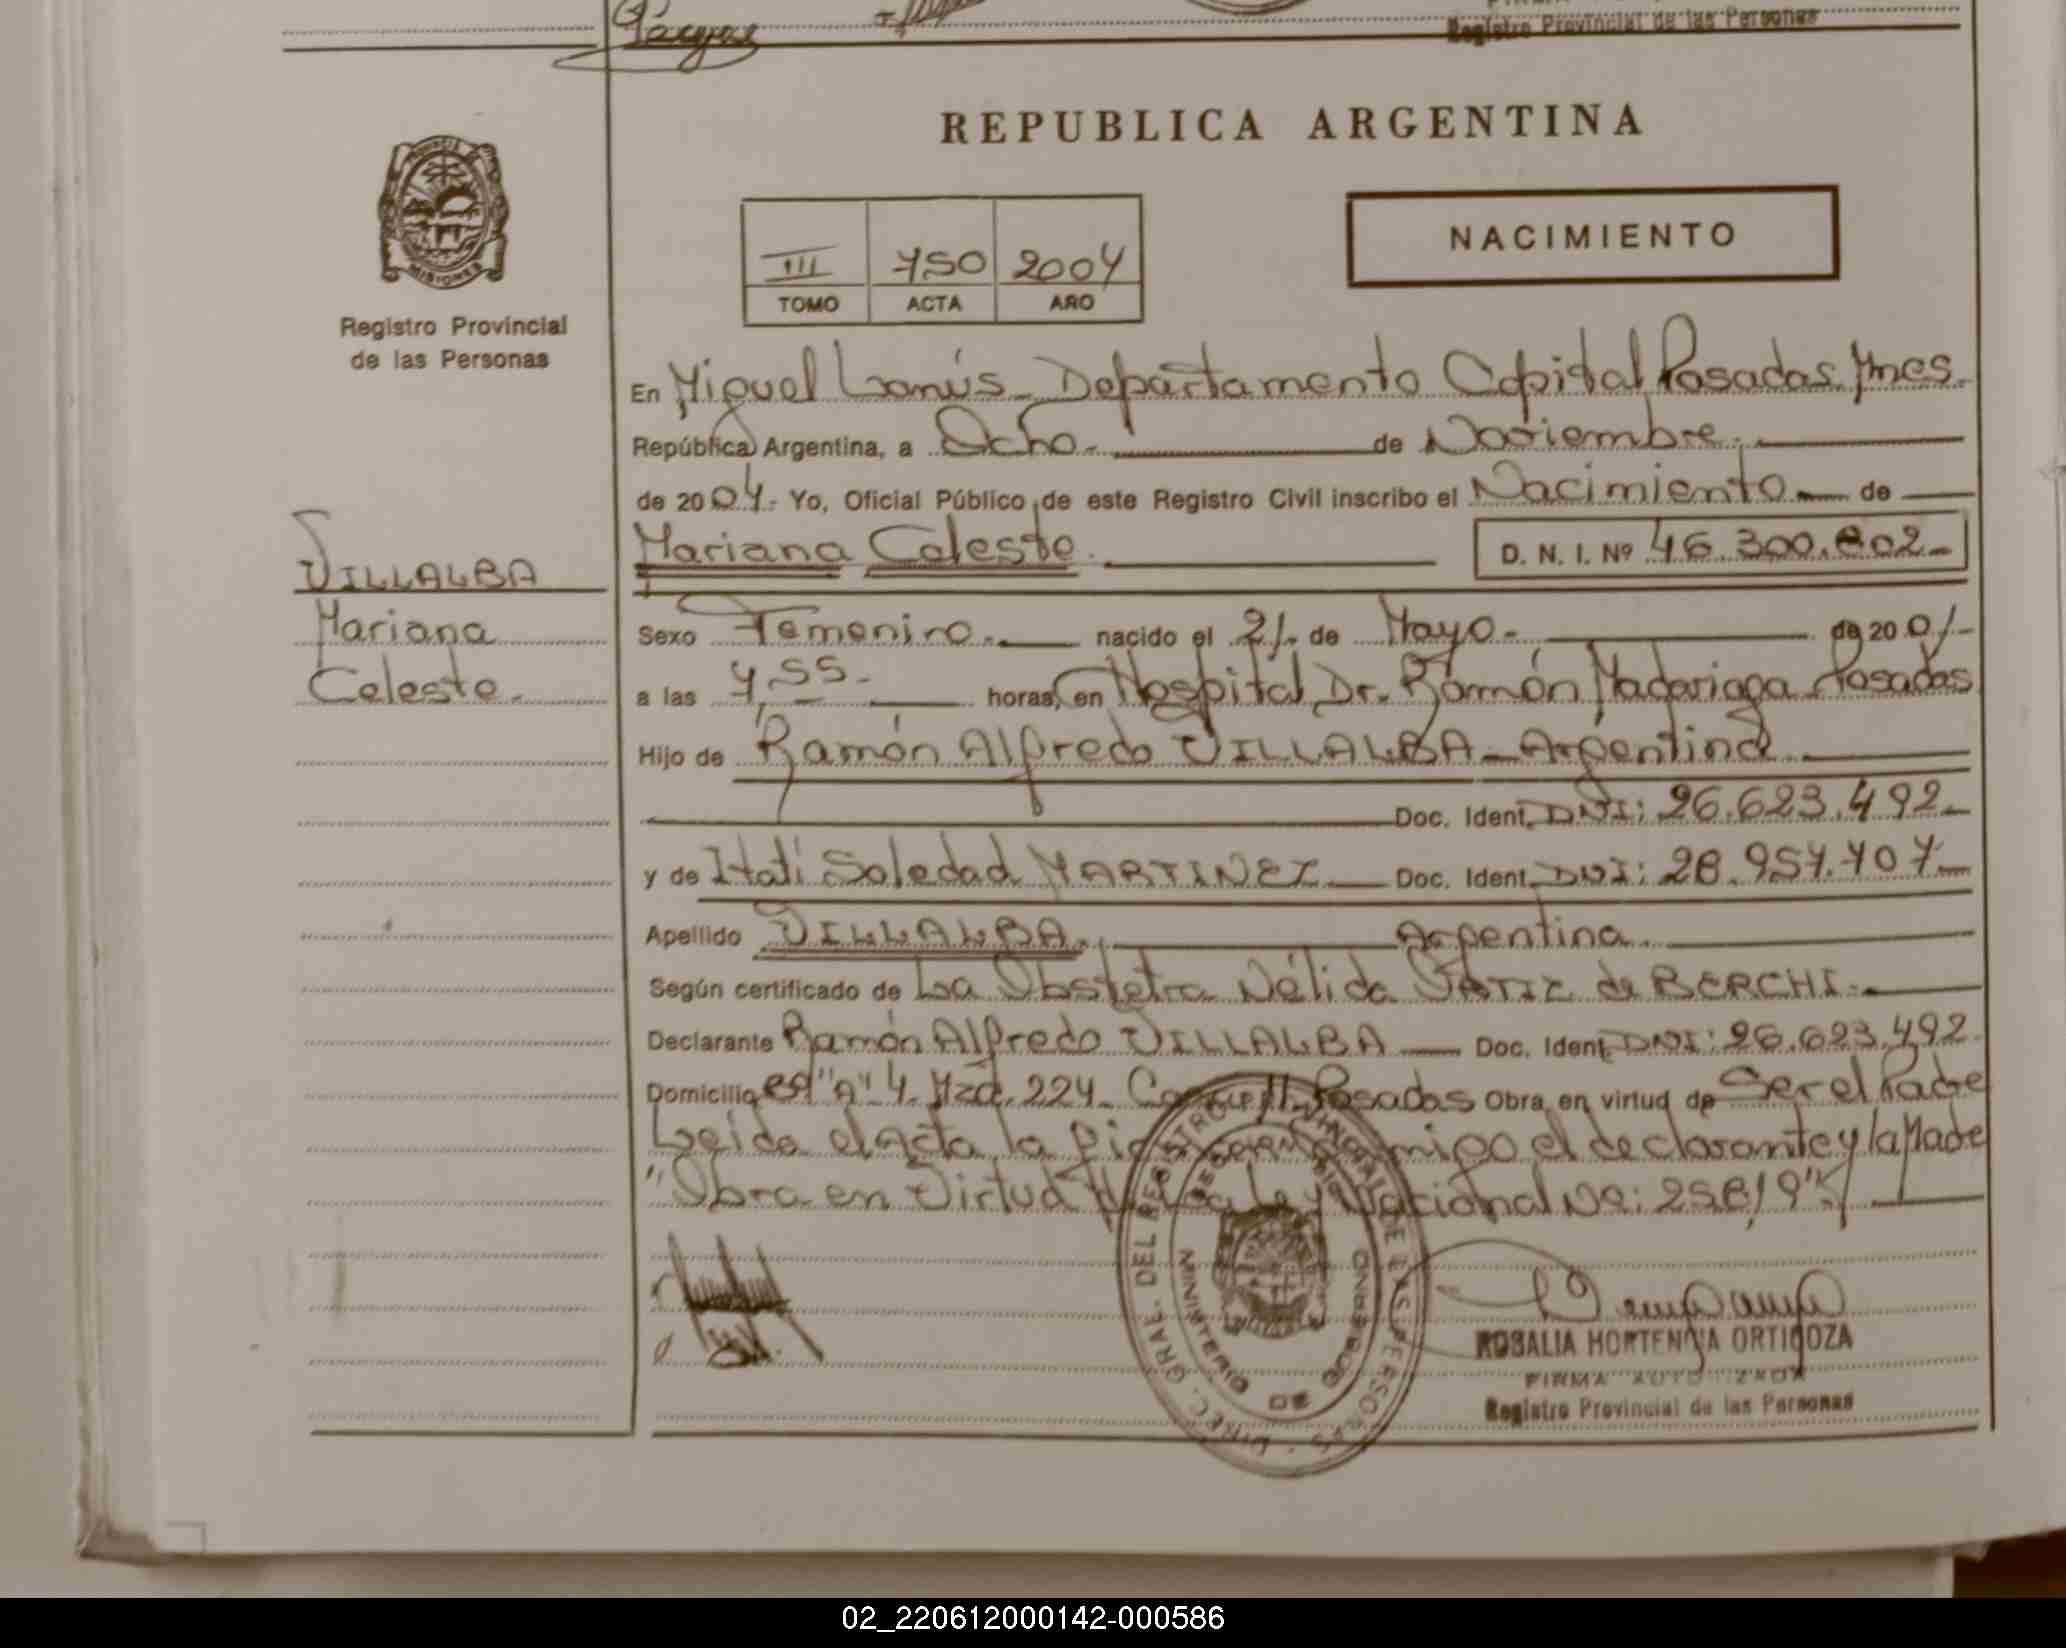 Registro Provincial de las Personas
REPUBLICA ARGENTINA
MISIONES
Registro Provincial
de las Personas
III 750 2004
TOMO ACTA AÑO
NACIMIENTO
En Miguel Lanús - Departamento Capital Posadas Mnes.
República Argentina, a Ocho. de Noviembre.
de 2004. Yo, Oficial Público de este Registro Civil inscribo el Nacimiento de
VILLALBA
Mariana
Celeste.
Mariana Celeste. D. N. I. Nº 46.300.802
Sexo Femenino. nacido el 21. de Mayo. de 2001
a las horas, en Hospital Dr. Ramón Madariaga Posadas
Hijo de Ramón Alfredo VILLALBA - Argentina
Doc. Ident. DNI: 26.623.492
y de Itati Soledad MARTINEZ Doc. Ident. DNI:
Apellido VILLALBA. Argentina.
Según certificado de La Obstetra Nélida de BERCHI.
Declarante Ramón Alfredo VILLALBA Doc. Ident. DNI: 26.623.492
Domicilio "A" 4. Mzd. 224. Posadas Obra en virtud de Ser el Padre
Leida el Acta la conmigo el declarante y la Madre
"Obra en Virtud Ley Nacional No:
DIREC. GRAL. DEL REGISTRO PROVINCIAL DE LAS PERSONAS
MINISTERIO DE GOBIERNO
ROSALIA HORTENSIA ORTIGOZA
FIRMA AUTORIZADA
Registro Provincial de las Personas
02_220612000142-000586